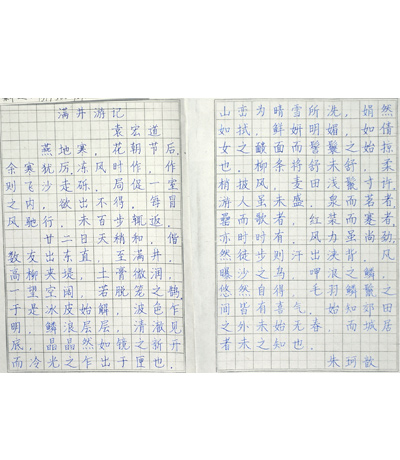 满井游记
袁宏道
燕地寒，花朝节后，
余寒犹厉，冻风时作，作
则飞沙走砾，局促一室
之内，欲出不得，每冒
风驰行，未百步辄返，
廿二日天稍和，偕
数友出东直，至满井，
高柳夹堤，土膏微润，
一望空阔，若脱笼之鹄
于是冰皮始解，波色乍
明，鳞浪层层，清澈见
底，晶晶然如镜之新开
而冷光之乍出于匣也，
山峦为晴雪所洗，娟然
如拭，鲜妍明媚，如倩
女之靧面而髻鬟之始掠
也，柳条将舒未舒，柔
梢披风，麦田浅鬣寸许，
游人虽未盛，泉而茗者，
罍而歌者，红装而蹇者，
亦时时有，风力虽尚劲，
然徒步则汗出浃背，凡
曝沙之鸟，呷浪之鳞，
悠然自得，毛羽鳞鬣之
间皆有喜气，始知郊田
之外未始无春，而城居
者未之知也，